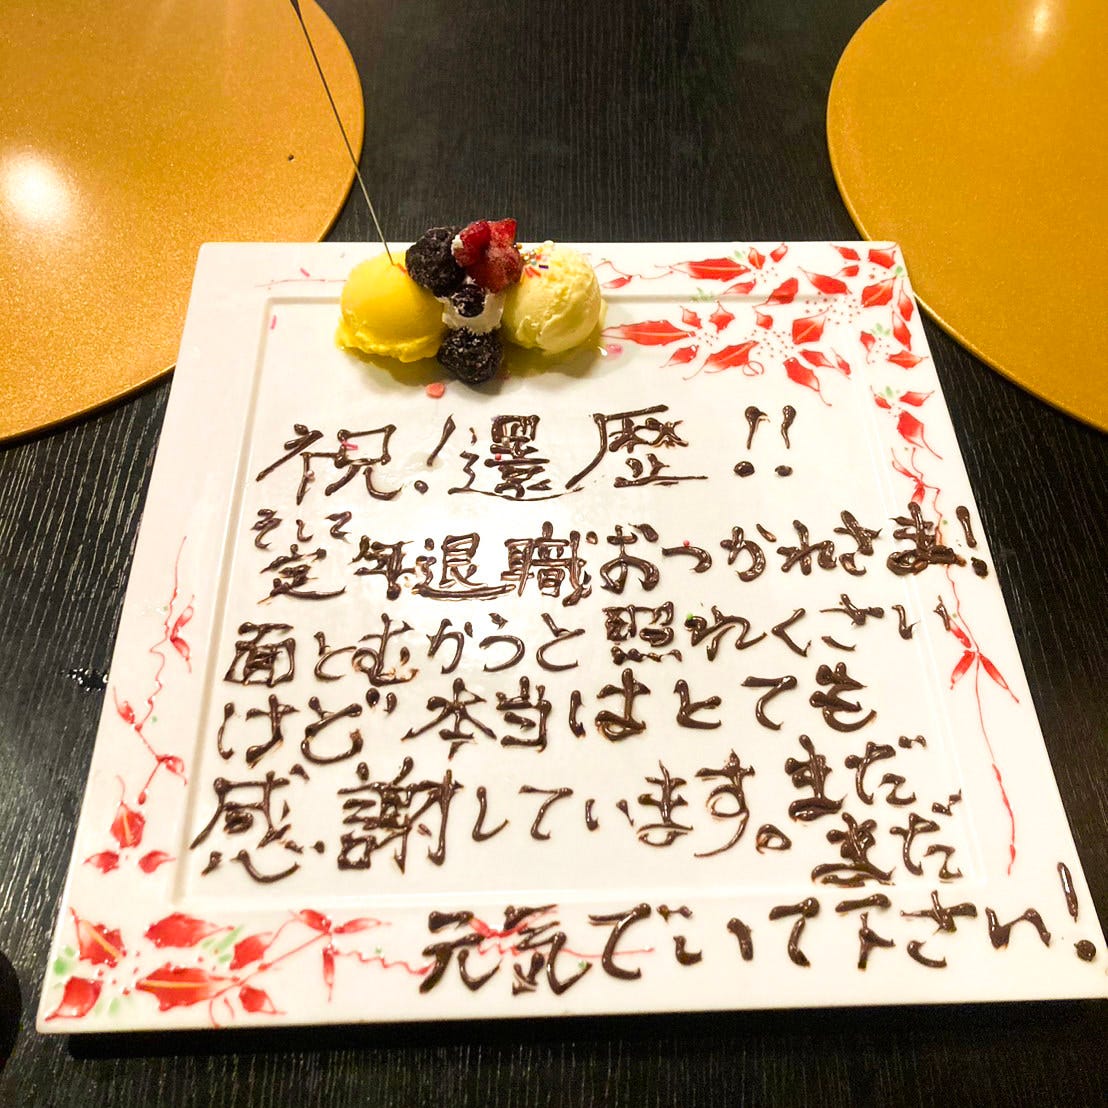 祝!還歴!!
そして
定年退職おつかれさま!
面とむかうと照れくさい
けど本当はとても
感謝しています。まだ
まだ
元気でいて下さい!